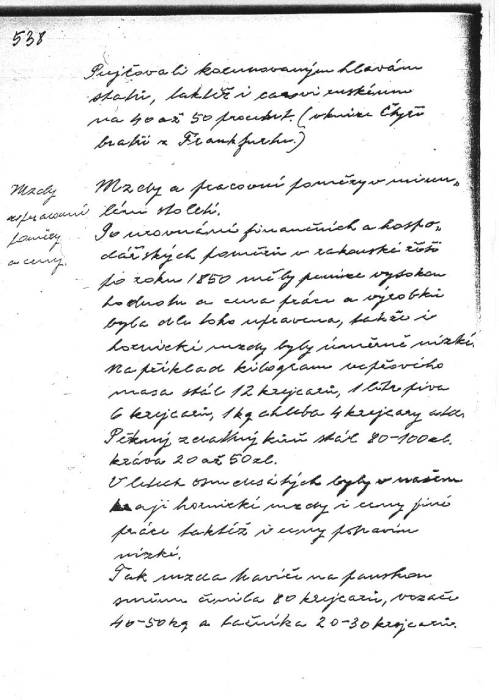 538
Pujčovali korunovaným hlavám
států, taktéž i carovi ruskému
na 40 až 50 procent. (v knize Čtyři
bratři z Frankfurtu.)
Mzdy
a pracovní
poměry
a ceny.
Mzdy a pracovní poměry v minu-
lém století.
Po urovnání finančních a hospo-
dářských poměrů v rakouské říši
po roku 1850 měly peníze vysokou
hodnotu a cena práce a výrobků
byla dle toho upravena, takže i
hornické mzdy byly úměrně nízké.
Na příklad kilogram vepřového
masa stál 12 krejcarů, 1 litr piva
6 krejcarů, 1 kg chleba 4 krejcary atd.
Pěkný zdatný kůň stál 80-100 zl.
kráva 20 až 50 zl.
V letech osmdesátých byly v našem
kraji hornické mzdy i ceny jiné
práce taktéž i ceny potravin
nízké.
Tak mzda havíře na panskou
směnu činila 80 krejcarů, vozače
40-50 kr a tačníka 20-30 krejcarů.